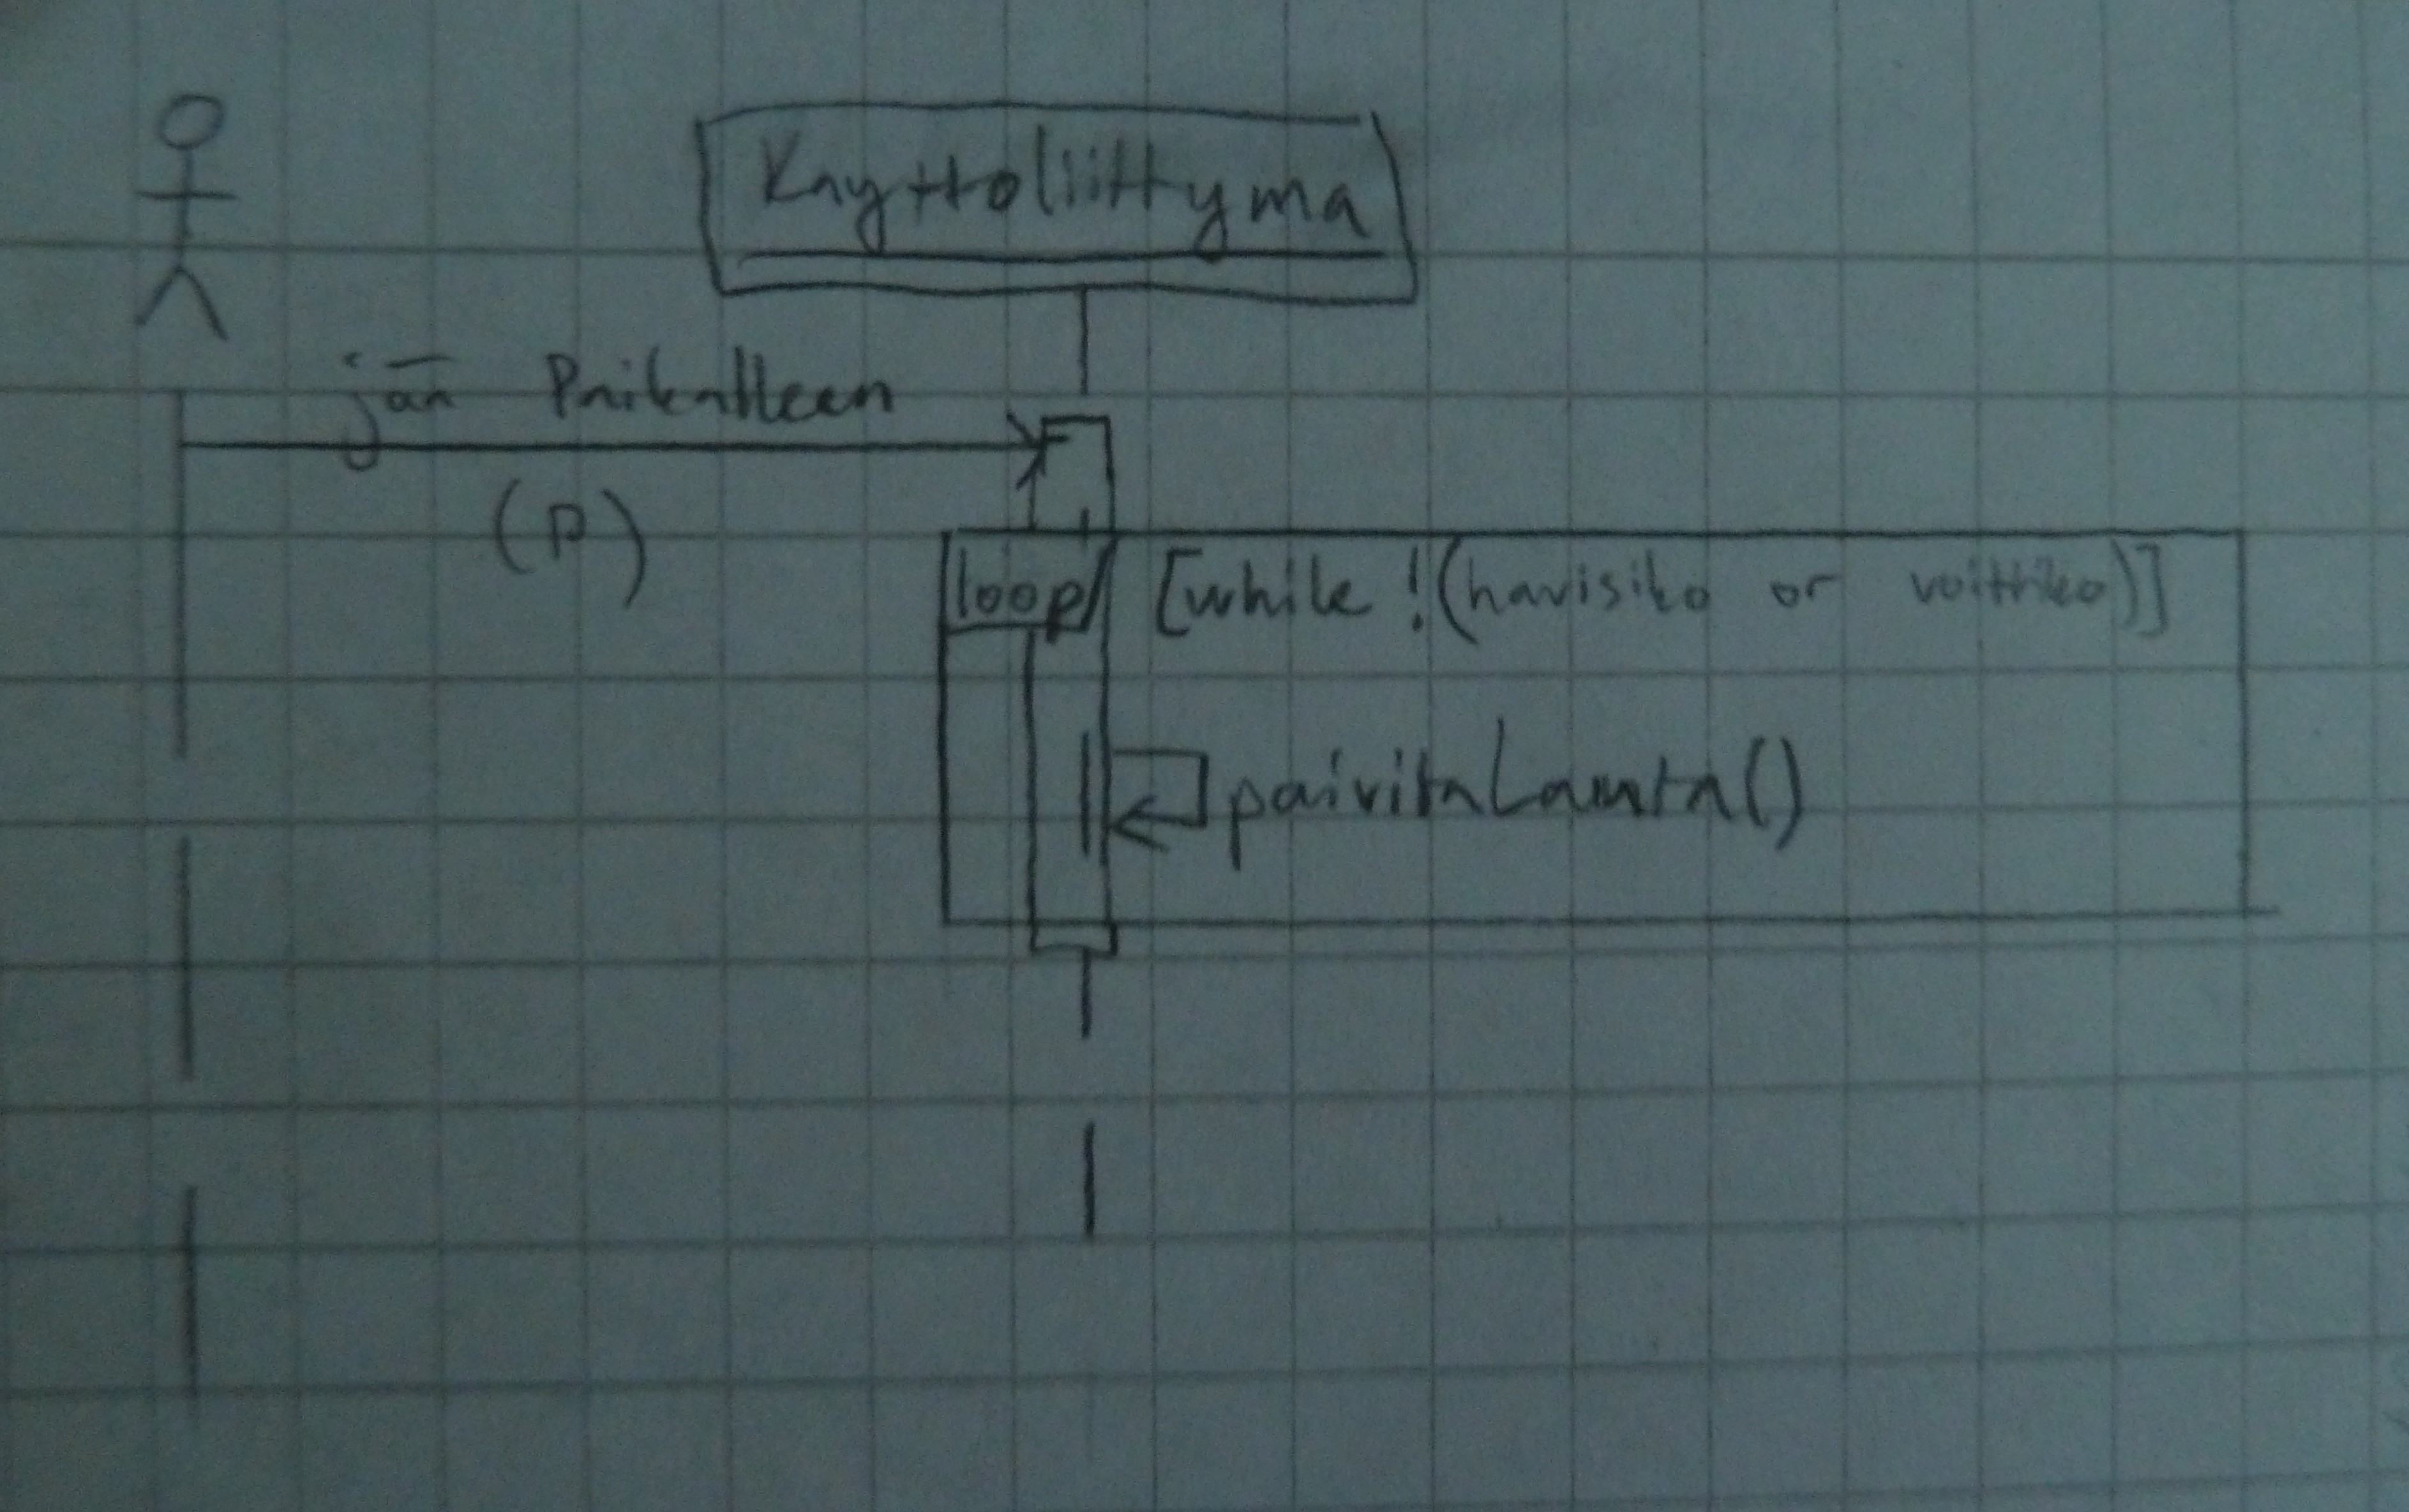 Kayttoliittyma
jää Paikalleen
(P)
loop [while !(havisiko or voittiko)]
paivitaLauta()